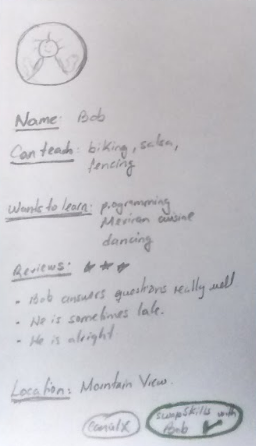 Name: Bob
Can teach: biking, salsa,
fencing
Wants to learn: programming
Mexican cuisine
dancing
Reviews: ★ ★ ★
• Bob answers questions really well
• He is sometimes late.
• He is alright
Location: Mountain View.
Cancel X
swap skills with
Bob ✔